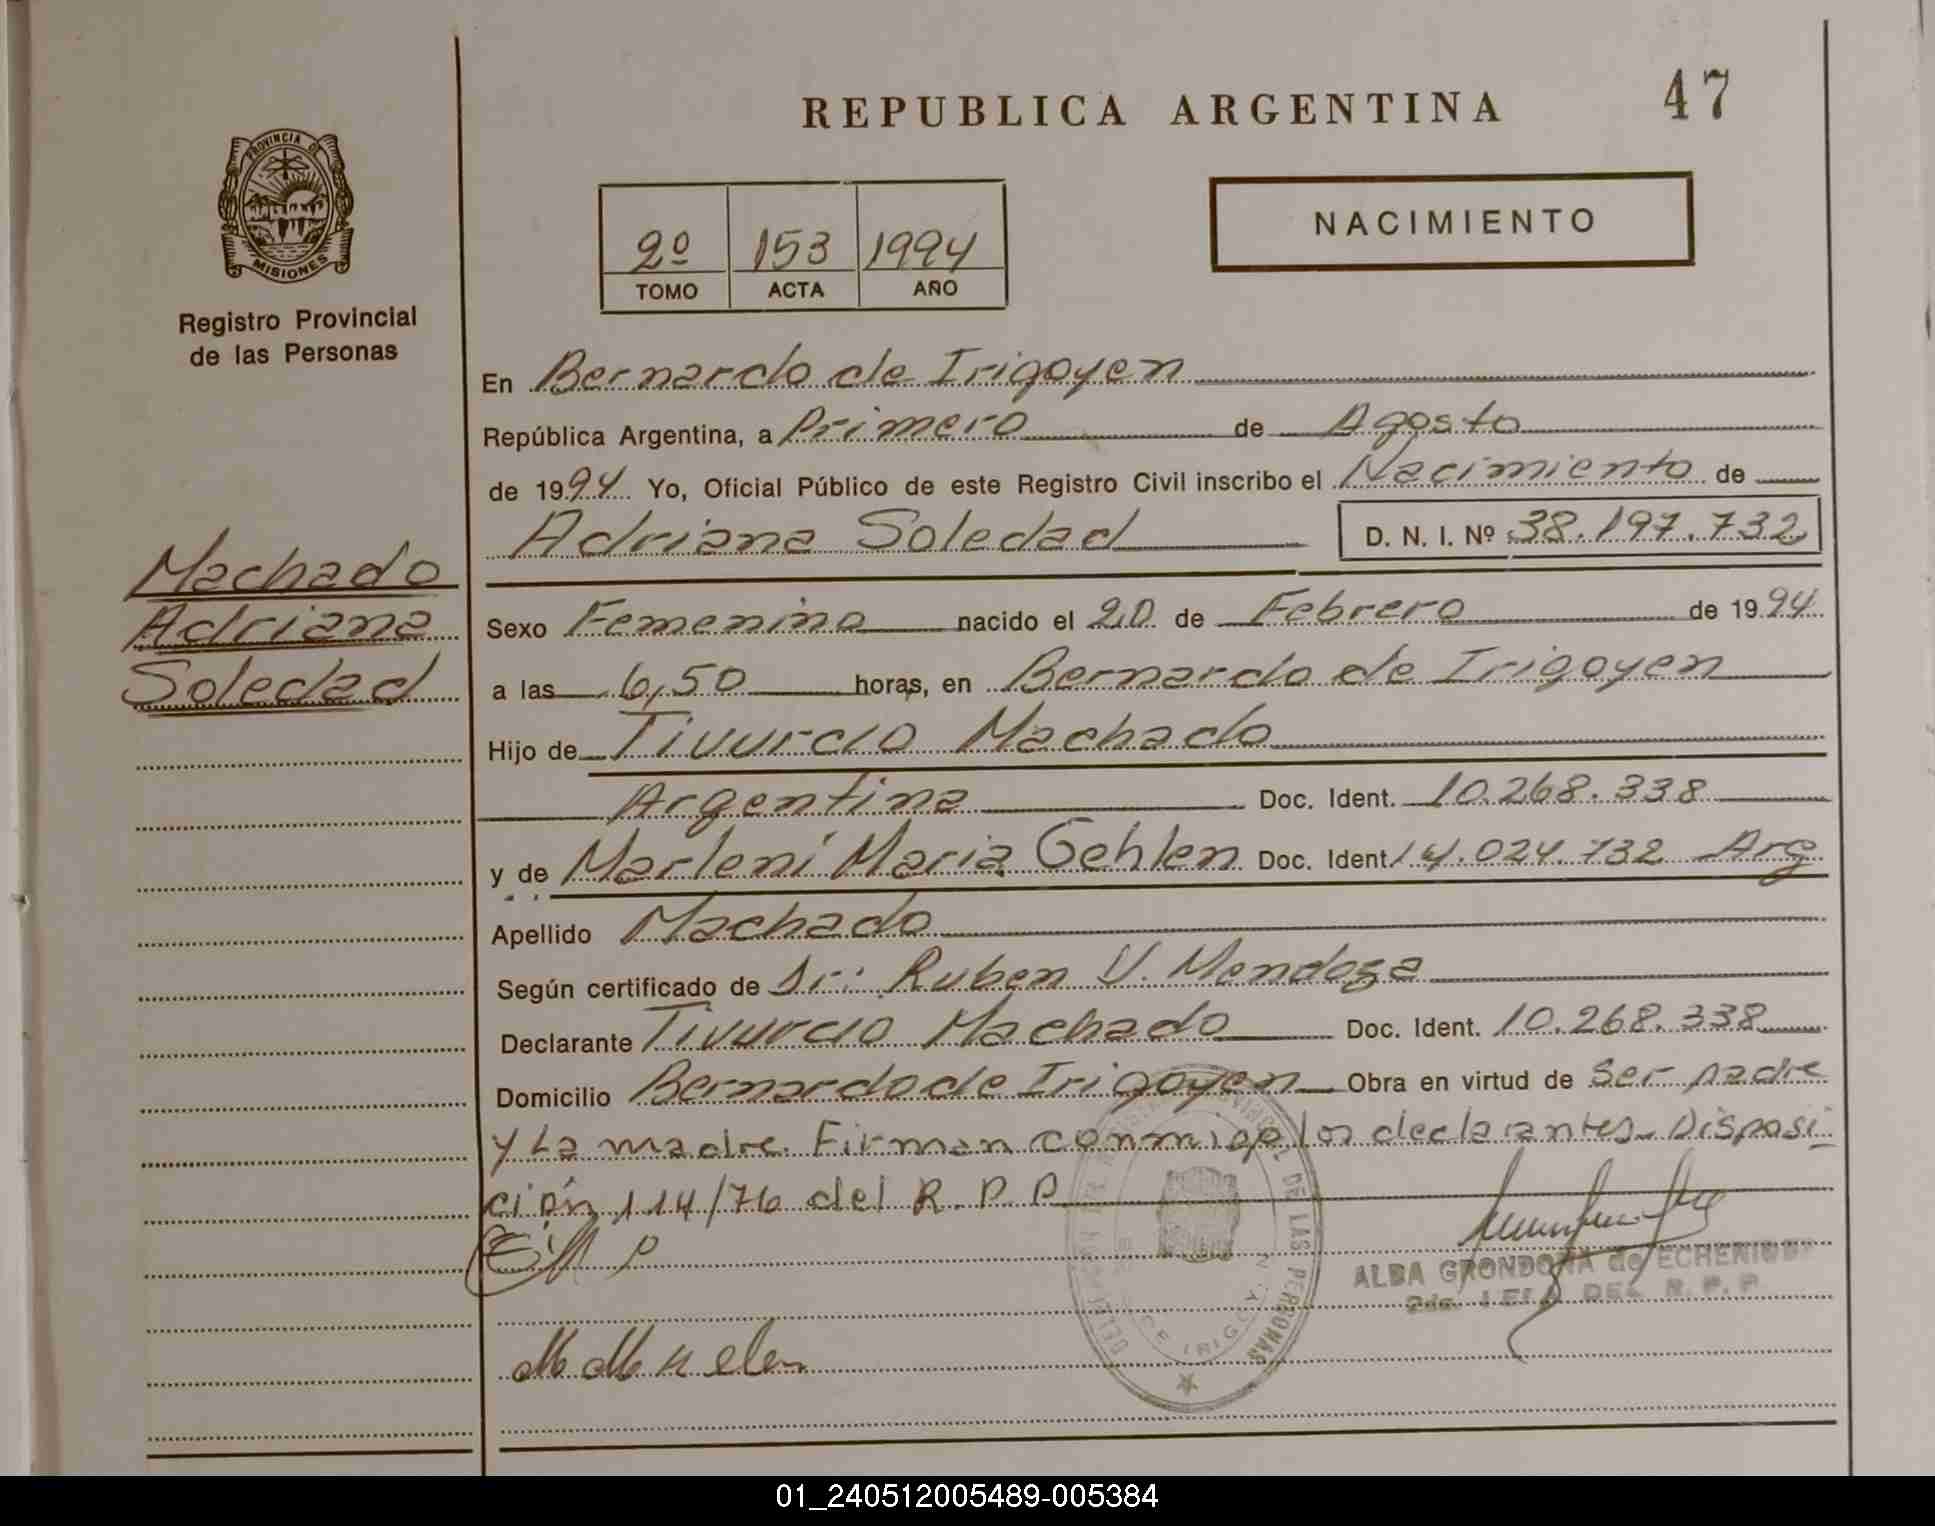 REPUBLICA ARGENTINA
47
PROVINCIA DE
MISIONES
Registro Provincial
de las Personas
2º 153 1994
TOMO ACTA AÑO
NACIMIENTO
En Bernardo de Irigoyen
República Argentina, a Primero de Agosto
de 1994 Yo, Oficial Público de este Registro Civil inscribo el Nacimiento de
Adriana Soledad D. N. I. Nº 38.197.732
Machado
Adriana
Soledad
Sexo Femenino nacido el 20 de Febrero de 1994
a las 6,50 horas, en Bernardo de Irigoyen
Hijo de Tivurcio Machado
Argentina Doc. Ident. 10.268.338
y de Marleni Maria Gehlen Doc. Ident 14.024.732 Arg
Apellido Machado
Según certificado de Dr: Ruben V. Mendoza
Declarante Tivurcio Machado Doc. Ident. 10.268.338
Domicilio Bernardo de Irigoyen Obra en virtud de Ser padre
y La madre. Firman conmigo los declarantes. Disposi
ción 114/76 del R. P. P
ALBA GRONDONA de ECHENIQUE
DEL R. P. P.
DE LAS PERSONAS
DE IRIGOYEN
01_240512005489-005384